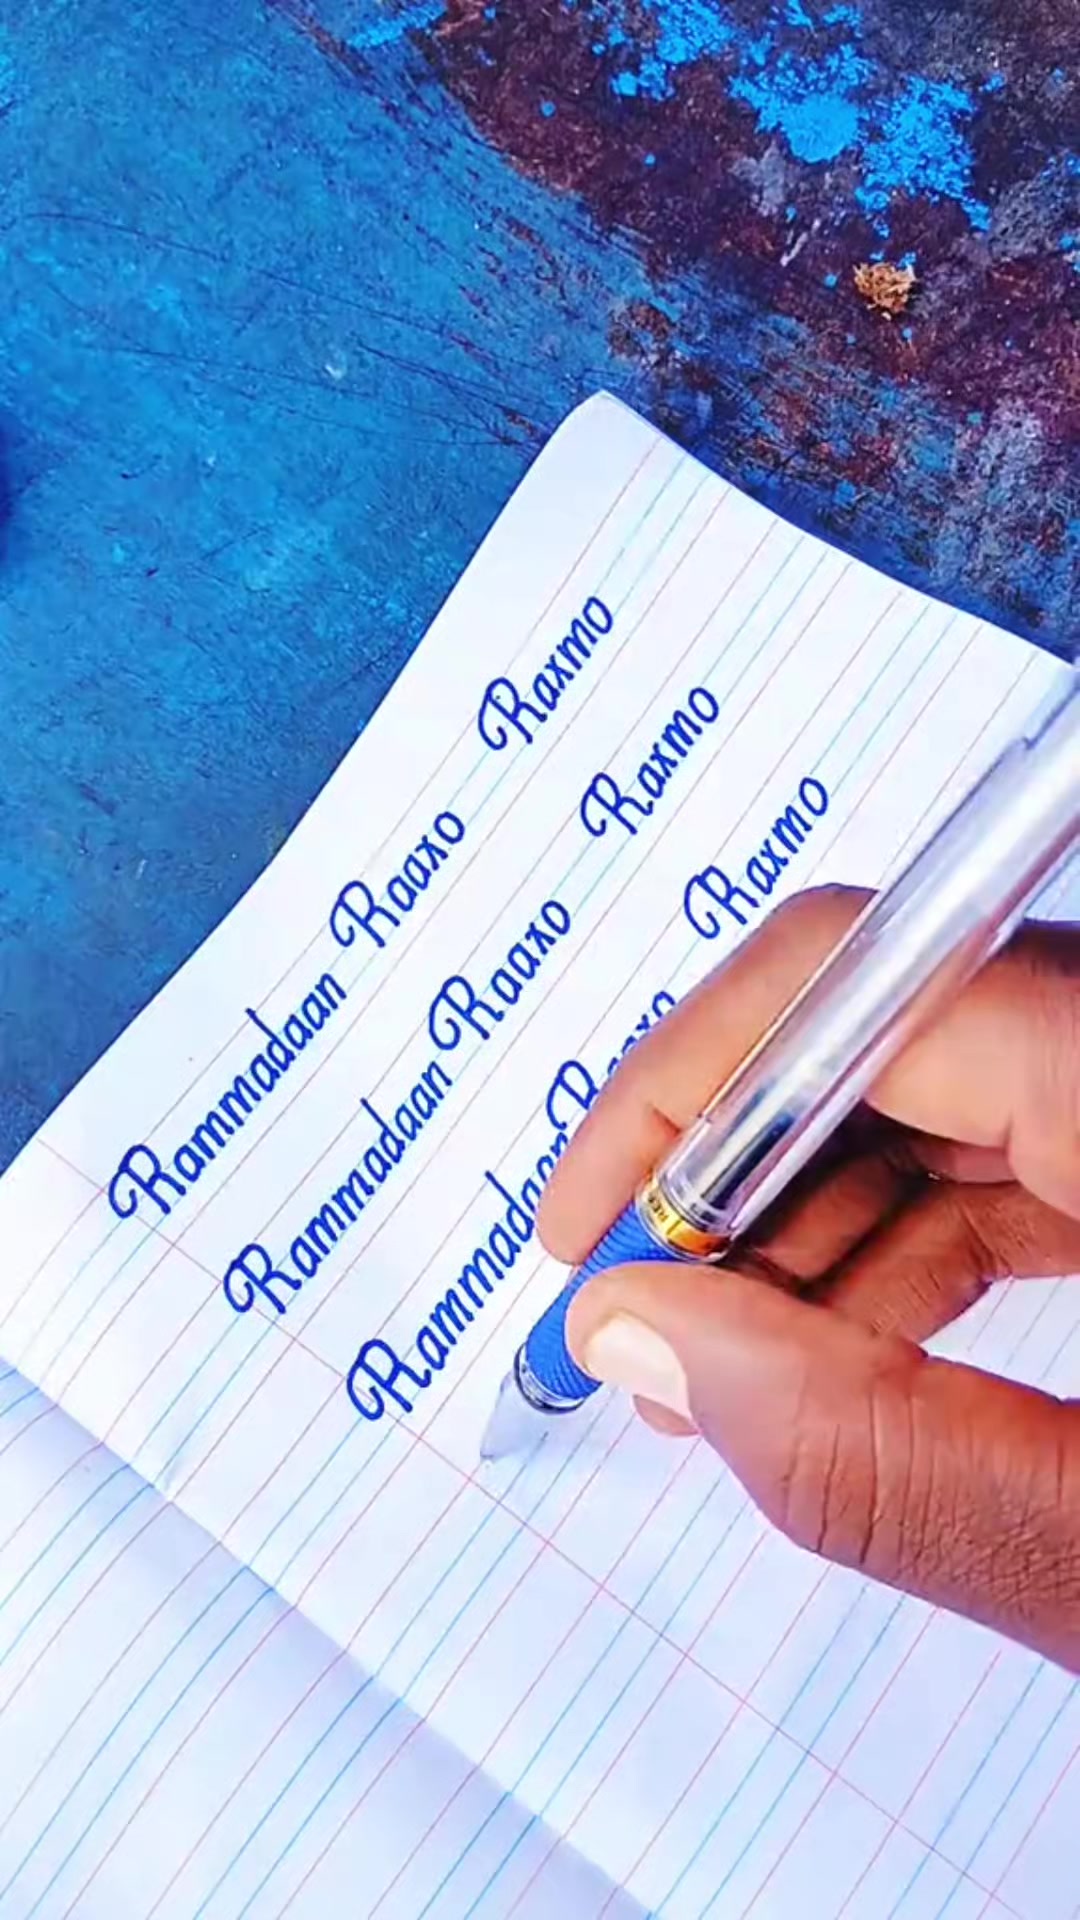 Rammadaan Raaxo Raxmo
Rammadaan Raaxo Raxmo
Rammadaan Raxmo